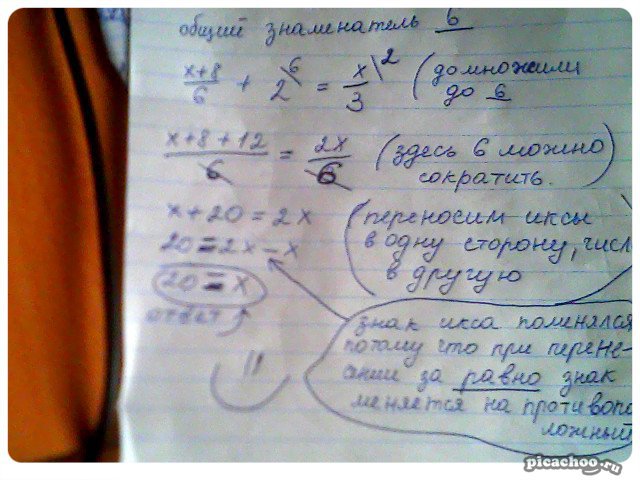 общий знаменатель 6
x+8/6 + 2\6 = x/3\2 (домножили до 6
x+8+12/6 = 2x/6 (здесь 6 можно сократить.)
x+20=2x (переносим иксы
20=2x-x в одну сторону, числ
20=x в другую
ответ
знак икса поменялся
потому что при перене-
сении за равно знак
меняется на противопо
ложный
picachoo.ru